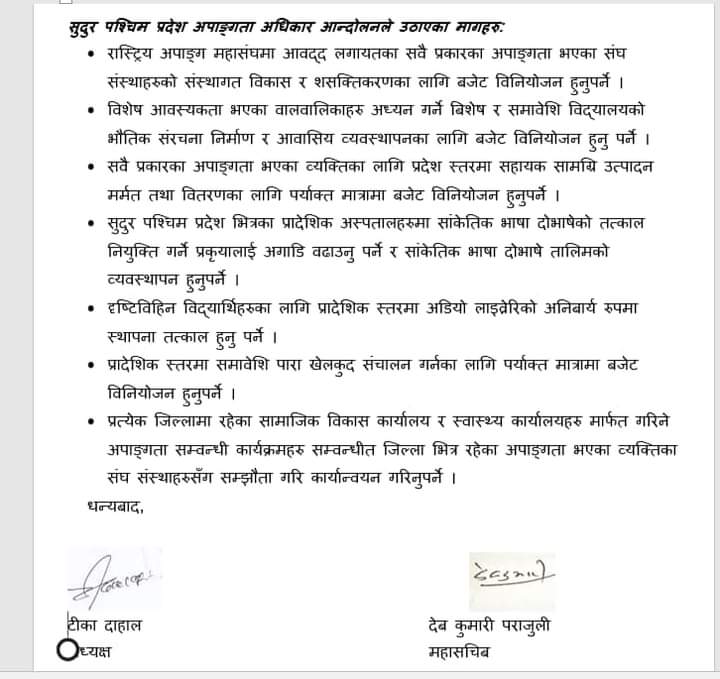 सुदुर पश्चिम प्रदेश अपाङ्गता अधिकार आन्दोलनले उठाएका मागहरु:
• रास्ट्रिय अपाङ्ग महासंघमा आवद्द लगायतका सवै प्रकारका अपाङ्गता भएका संघ
संस्थाहरुको संस्थागत विकास र शसक्तिकरणका लागि बजेट विनियोजन हुनुपर्ने ।
• विशेष आवस्यकता भएका वालवालिकाहरु अध्यन गर्ने बिशेष र समावेशि विद्यालयको
भौतिक संरचना निर्माण र आवासिय व्यवस्थापनका लागि बजेट विनियोजन हुनु पर्ने ।
• सवै प्रकारका अपाङ्गता भएका व्यक्तिका लागि प्रदेश स्तरमा सहायक सामग्रि उत्पादन
मर्मत तथा वितरणका लागि पर्याक्त मात्रामा बजेट विनियोजन हुनुपर्ने ।
• सुदुर पश्चिम प्रदेश भित्रका प्रादेशिक अस्पतालहरुमा सांकेतिक भाषा दोभाषेको तत्काल
नियुक्ति गर्ने प्रकृयालाई अगाडि वढाउनु पर्ने र सांकेतिक भाषा दोभाषे तालिमको
व्यवस्थापन हुनुपर्ने ।
• दृष्टिविहिन विद्यार्थिहरुका लागि प्रादेशिक स्तरमा अडियो लाइव्रेरिको अनिबार्य रुपमा
स्थापना तत्काल हुनु पर्ने ।
• प्रादेशिक स्तरमा समावेशि पारा खेलकुद संचालन गर्नका लागि पर्याक्त मात्रामा बजेट
विनियोजन हुनुपर्ने ।
• प्रत्येक जिल्लामा रहेका सामाजिक विकास कार्यालय र स्वास्थ्य कार्यालयहरु मार्फत गरिने
अपाङ्गता सम्वन्धी कार्यक्रमहरु सम्वन्धीत जिल्ला भित्र रहेका अपाङ्गता भएका व्यक्तिका
संघ संस्थाहरुसँग सम्झौता गरि कार्यान्वयन गरिनुपर्ने ।
धन्यबाद,
टीका दाहाल
देब कुमारी पराजुली
ध्यक्ष
महासचिब